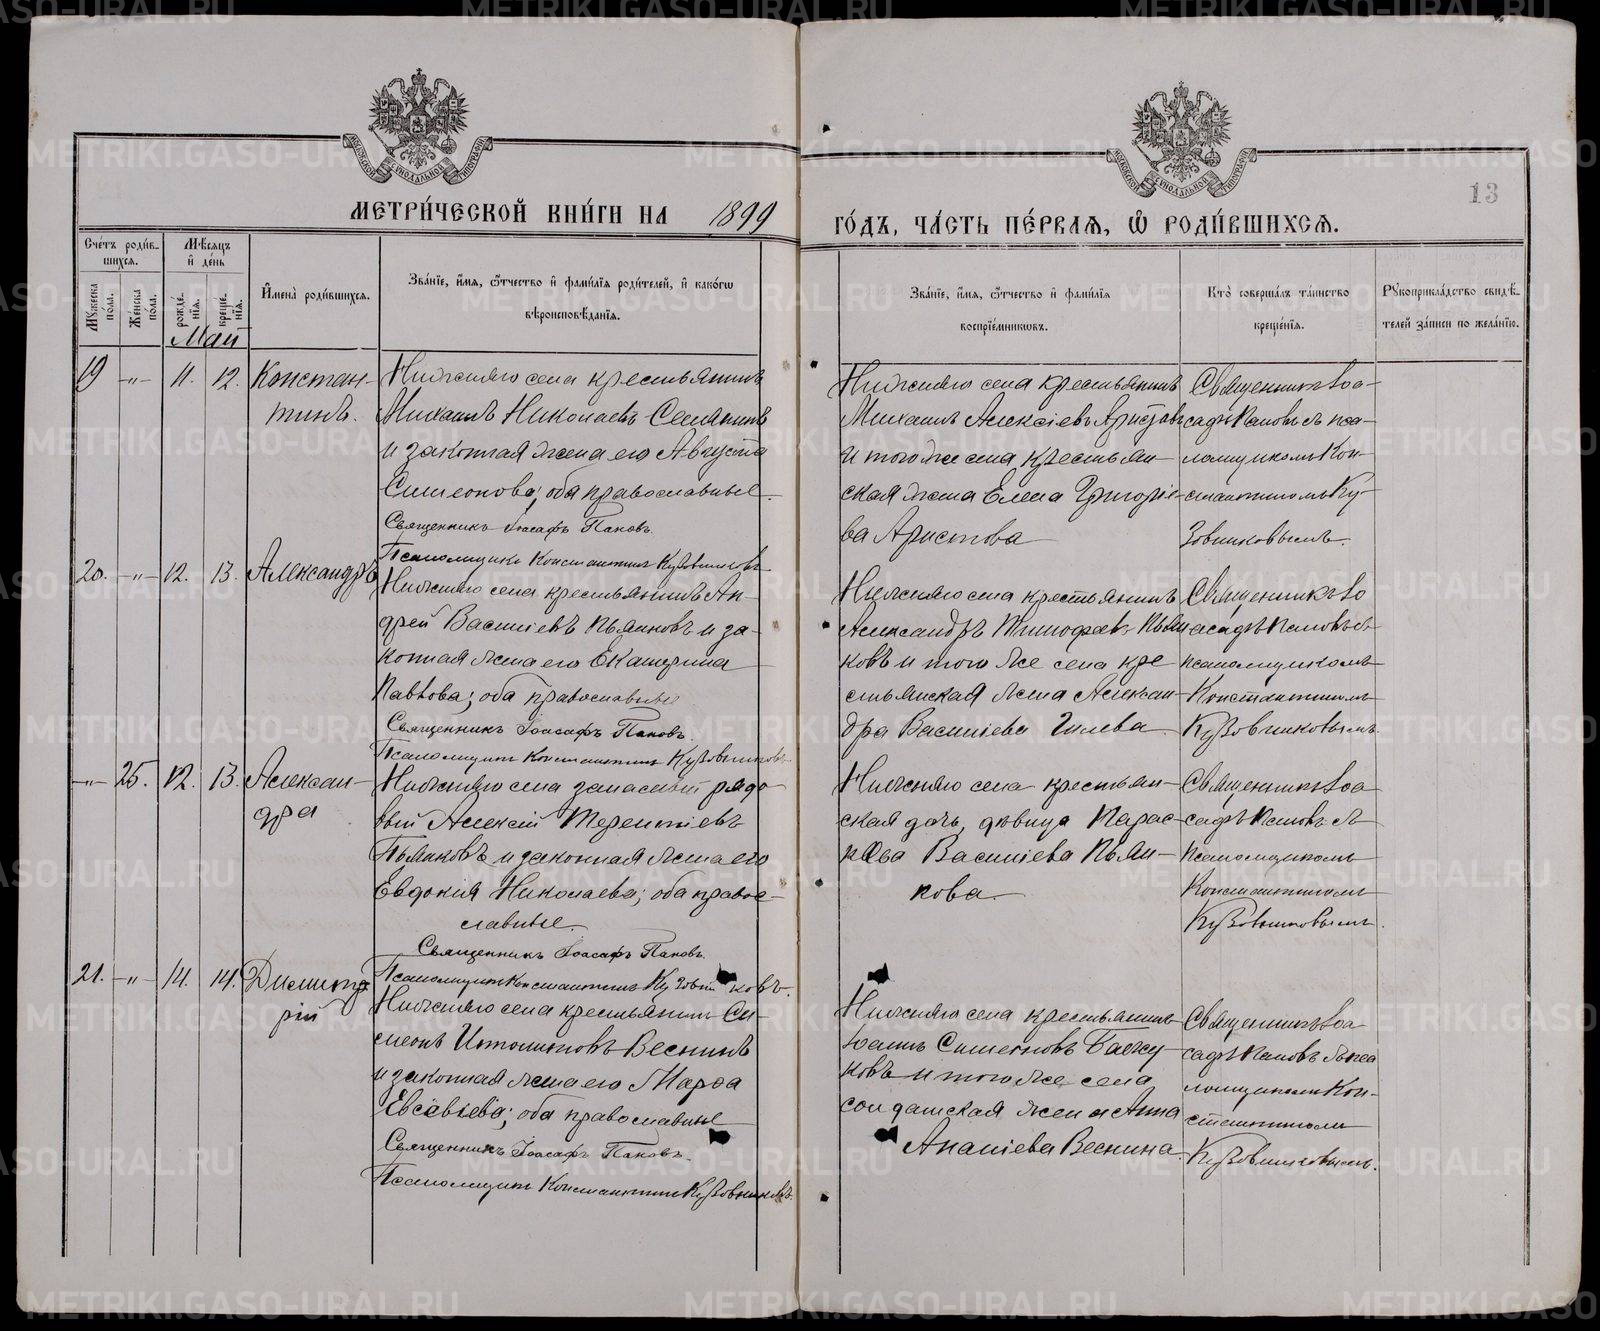 МЕТРИ́ЧЕСКОЙ КНИ́ГИ НА 1899
ГО́ДЪ, ЧА́СТЬ ПЕ́РВАЯ, Ѿ РОДИ́ВШИХСЯ.
13
Сче́тъ роди́в-
шихся.
Мѣ́сяцъ
и҆ де́нь
Мꙋ́жеска
по́ла.
Же́нска
по́ла.
рожде́-
нїя.
креще́-
нїя.
И҆мена̀ роди́вшихся.
Зва́нїе, и҆́мя, ѻ҆́тчество и҆ фами́лїя роди́телей, и҆ како́гѡ
вѣроисповѣ́данїя.
Зва́нїе, и҆́мя, ѻ҆́тчество и҆ фами́лїя
воспрїе́мниковъ.
Кто̀ соверша́лъ та́инство
креще́нїя.
Рꙋкоприкла́дство свидѣ́-
телей за́писи по жела́нїю.
Май
19 -„- 11. 12. Констан-
тинъ.
Нижняго села крестьянинъ
Михаилъ Николаевъ
и законная жена его Августа
Симеонова; оба православные.
Священникъ Іоасафъ Пановъ.
Псаломщикъ Константинъ Кузовниковъ
Нижняго села крестьянинъ
Михаилъ Алексіевъ Аристовъ
и того же села, крестьян-
ская жена Елена Григоріе-
ва Аристова
Священникъ Іоа-
сафъ Пановъ съ пса-
ломщикомъ Кон-
стантиномъ Ку-
зовниковымъ.
20. -„- 12. 13. Александръ
Нижняго села крестьянинъ Ан-
дрей Василіевъ Пьянковъ и за-
конная жена его Екатерина
Павлова; оба православные
Священникъ Іоасафъ Пановъ.
Псаломщикъ Константинъ Кузовниковъ
Нижняго села крестьянинъ
Александръ Тимофеевъ Пьян
ковъ и того же села кре
стьянская жена Алексан-
дра Василіева Гилева
Священникъ Іо
асафъ Пановъ съ
псаломщикомъ
Константиномъ
Кузовниковымъ.
-„- 25. 12. 13. Алексан-
дра
Нижняго села запасный рядо-
вый Алексій Терентіевъ
Пьянковъ и законная жена его
Евдокія Николаева; оба право-
славные.
Священникъ Іоасафъ Пановъ.
Псаломщикъ Константинъ Кузовниковъ.
Нижняго села крестьян-
ская дочь, дѣвица Парас-
кева Василіева Пьян-
кова.
Священникъ Іоа
сафъ Пановъ съ
псаломщикомъ
Константиномъ
Кузовниковымъ.
21. -„- 14. 14. Димит
рій
Нижняго села крестьянинъ Си-
меонъ Веснинъ
и законная жена его Марѳа
Евсевіева; оба православные
Священникъ Іоасафъ Пановъ.
Псаломщикъ Константинъ Кузовниковъ.
Нижняго села крестьянинъ
Іоаннъ Симеоновъ
ковъ и того же села
солдатская жена Анна
Ананіева Веснина.
Священникъ Іоа
сафъ Пановъ съ пса
ломщикомъ Кон-
стантиномъ
Кузовниковымъ.
METRIKI.GASO-URAL.RU